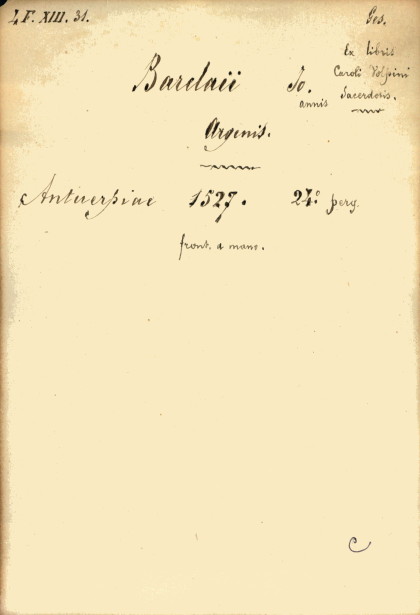 L F. XIII. 31.
Ges.
Ex libris
Caroli
Sacerdotis.
Barclaii Jo.
annis
Argenis.
Antuerpiae 1527. 24° perg.
front. a mano.
C